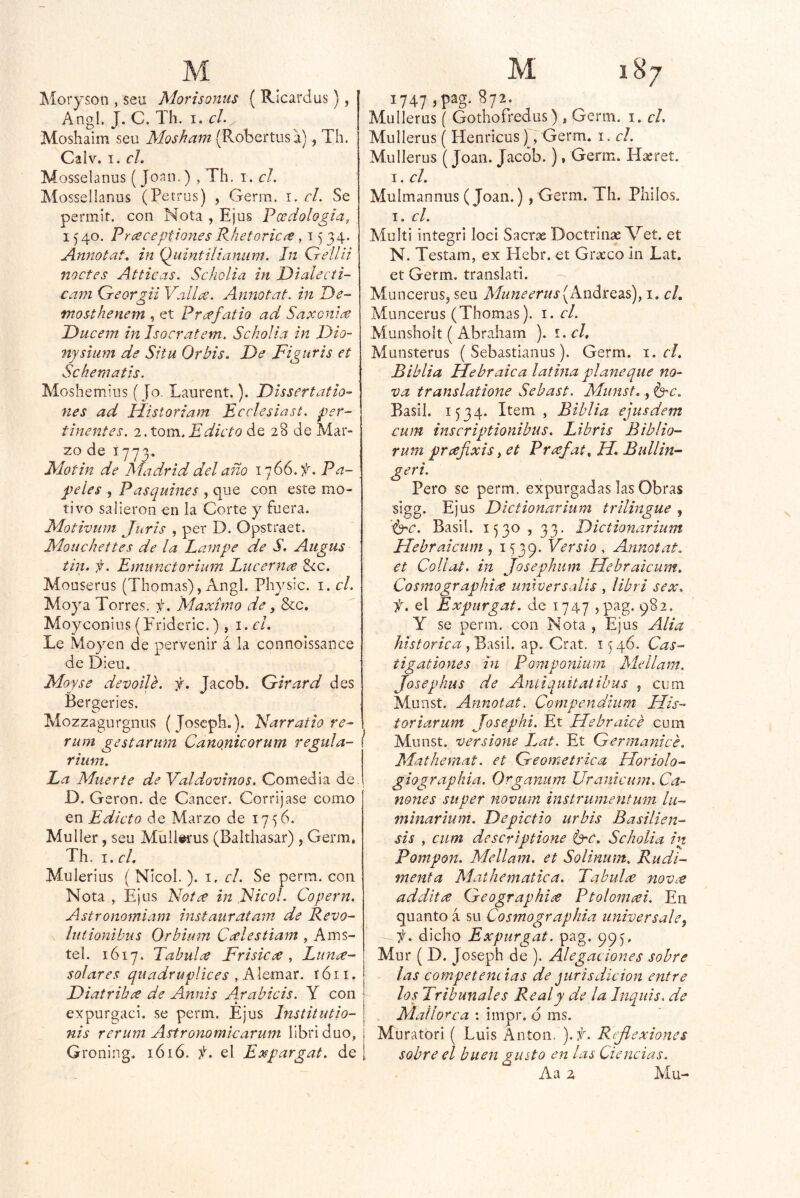 M
Moryson, seu Morisonus (Ricardus),
Angl. J. C. Th. 1. cl.
Moshaim seu Mosham (Robertus à), Th.
Calv. 1. cl.
Mosselanus (Joan.), Th. 1. cl.
Mossellanus (Petrus), Germ. 1. cl. Se
permit. con Nota, Ejus Pœdologia,
1540. Præceptiones Rhetoricæ, 1534.
Annotat. in Quintilianum. In Gellii
noctes Atticas. Scholia in Dialecti-
cam Georgii Vallæ. Annotat. in De-
mosthenem, et Præfatio ad Saxoniæ
Ducem in Isocratem. Scholia in Dio-
nysium de Situ Orbis. De Figuris et
Schematis.
Moshemius (Jo. Laurent.). Dissertatio-
nes ad Historiam Ecclesiast. per-
tinentes. 2. tom. Edicto de 28 de Mar-
zo de 1773.
Motin de Madrid del año 1766. ỳ. Pa-
peles, Pasquines, que con este mo-
tivo salieron en la Corte y fuera.
Motivum Juris, per D. Opstraet.
Mouchettes de la Lampe de S. Augus
tin. ỳ. Emunctorium Lucernæ &c.
Mouserus (Thomas), Angl. Physic. 1. cl.
Moya Torres. ỳ. Maximo de, &c.
Moyconius (Frideric.), 1. cl.
Le Moyen de pervenir á la connoissance
de Dieu.
Moyse devoilè. ỳ. Jacob. Girard des
Bergeries.
Mozzagurgnus (Joseph.). Narratio re-
rum gestarum Canonicorum regula-
rium.
La Muerte de Valdovinos. Comedia de
D. Geron. de Cancer. Corrijase como
en Edicto de Marzo de 1756.
Muller, seu Mullerus (Balthasar), Germ.
Th. 1. cl.
Mulerius (Nicol.). 1. cl. Se perm. con
Nota, Ejus Notæ in Nicol. Copern.
Astronomiam instauratam de Revo-
lutionibus Orbium Cælestiam, Ams-
tel. 1617. Tabulæ Frisicæ, Lunæ-
solares quadruplices, Alemar. 1611.
Diatribæ de Annis Arabicis. Y con
expurgaci. se perm. Ejus Institutio-
nis rerum Astronomicarum libri duo,
Groning. 1616. ỳ. el Expargat. de
M 187
1747, pag. 872.
Mullerus (Gothofredus), Germ. 1. cl.
Mullerus (Henricus), Germ. 1. cl.
Mullerus (Joan. Jacob.), Germ. Hæret.
1. cl.
Mulmannus (Joan.), Germ. Th. Philos.
1. cl.
Multi integri loci Sacræ Doctrinæ Vet. et
N. Testam, ex Hebr. et Græco in Lat.
et Germ. translati.
Muncerus, seu Muneerus (Andreas), 1. cl.
Muncerus (Thomas). 1. cl.
Munsholt (Abraham). 1. cl.
Munsterus (Sebastianus). Germ. 1. cl.
Biblia Hebraica latina planeque no-
va translatione Sebast. Munst., &c.
Basil. 1534. Item, Biblia ejusdem
cum inscriptionibus. Libris Biblio-
rum præfixis, et Præfat. H. Bullin-
geri.
Pero se perm. expurgadas las Obras
sigg. Ejus Dictionarium trilingue,
&c. Basil. 1530, 33. Dictionarium
Hebraicum, 1539. Versio, Annotat.
et Collat. in Josephum Hebraicum.
Cosmographiæ universalis, libri sex.
ỳ. el Expurgat. de 1747, pag. 982.
Y se perm. con Nota, Ejus Alia
historica, Basil. ap. Crat. 1546. Cas-
tigationes in Pomponium Mellam.
Josephus de Antiquitatibus, cum
Munst. Annotat. Compendium His-
toriarum Josephi. Et Hebraicè cum
Munst. versione Lat. Et Germanicè.
Mathemat. et Geometrica Horiolo-
giographia. Organum Uranicum. Ca-
nones super novum instrumentum lu-
minarium. Depictio urbis Basilien-
sis, cum descriptione &c. Scholia in
Pompon. Mellam. et Solinum. Rudi-
menta Mathematica. Tabulæ novæ
additæ Geographiæ Ptolomæi. En
quanto á su Cosmographia universale,
ỳ. dicho Expurgat. pag. 995.
Mur (D. Joseph de). Alegaciones sobre
las competencias de jurisdicion entre
los Tribunales Real y de la Inquis. de
Mallorca: impr. ó ms.
Muratori (Luis Anton.). ỳ. Reflexiones
sobre el buen gusto en las Ciencias.
Aa 2 Mu-